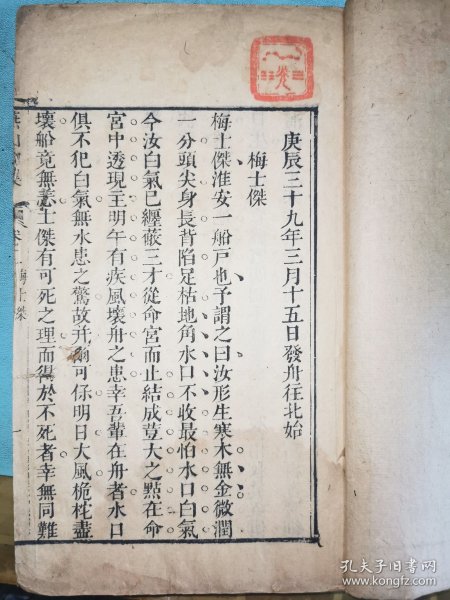 庚辰三十九年三月十五日發舟往北始
梅士傑
梅士傑淮安一船戶也予謂之曰汝形生寒木無金微潤
一分頭尖身長背陷足枯地角水口不收最怕水口白氣
今汝白氣已纏蔽三才從命宮而止結成荳大之點在命
宮中透現主明午有疾風壞舟之患幸吾輩在舟者水口
俱不犯白氣無水患之驚故并爾可保明日大風桅柁盡
壞船竟無恙士傑有可死之理而得於不死者幸無同難
卷
梅士傑
孔夫子旧书网
www.kongfz.com